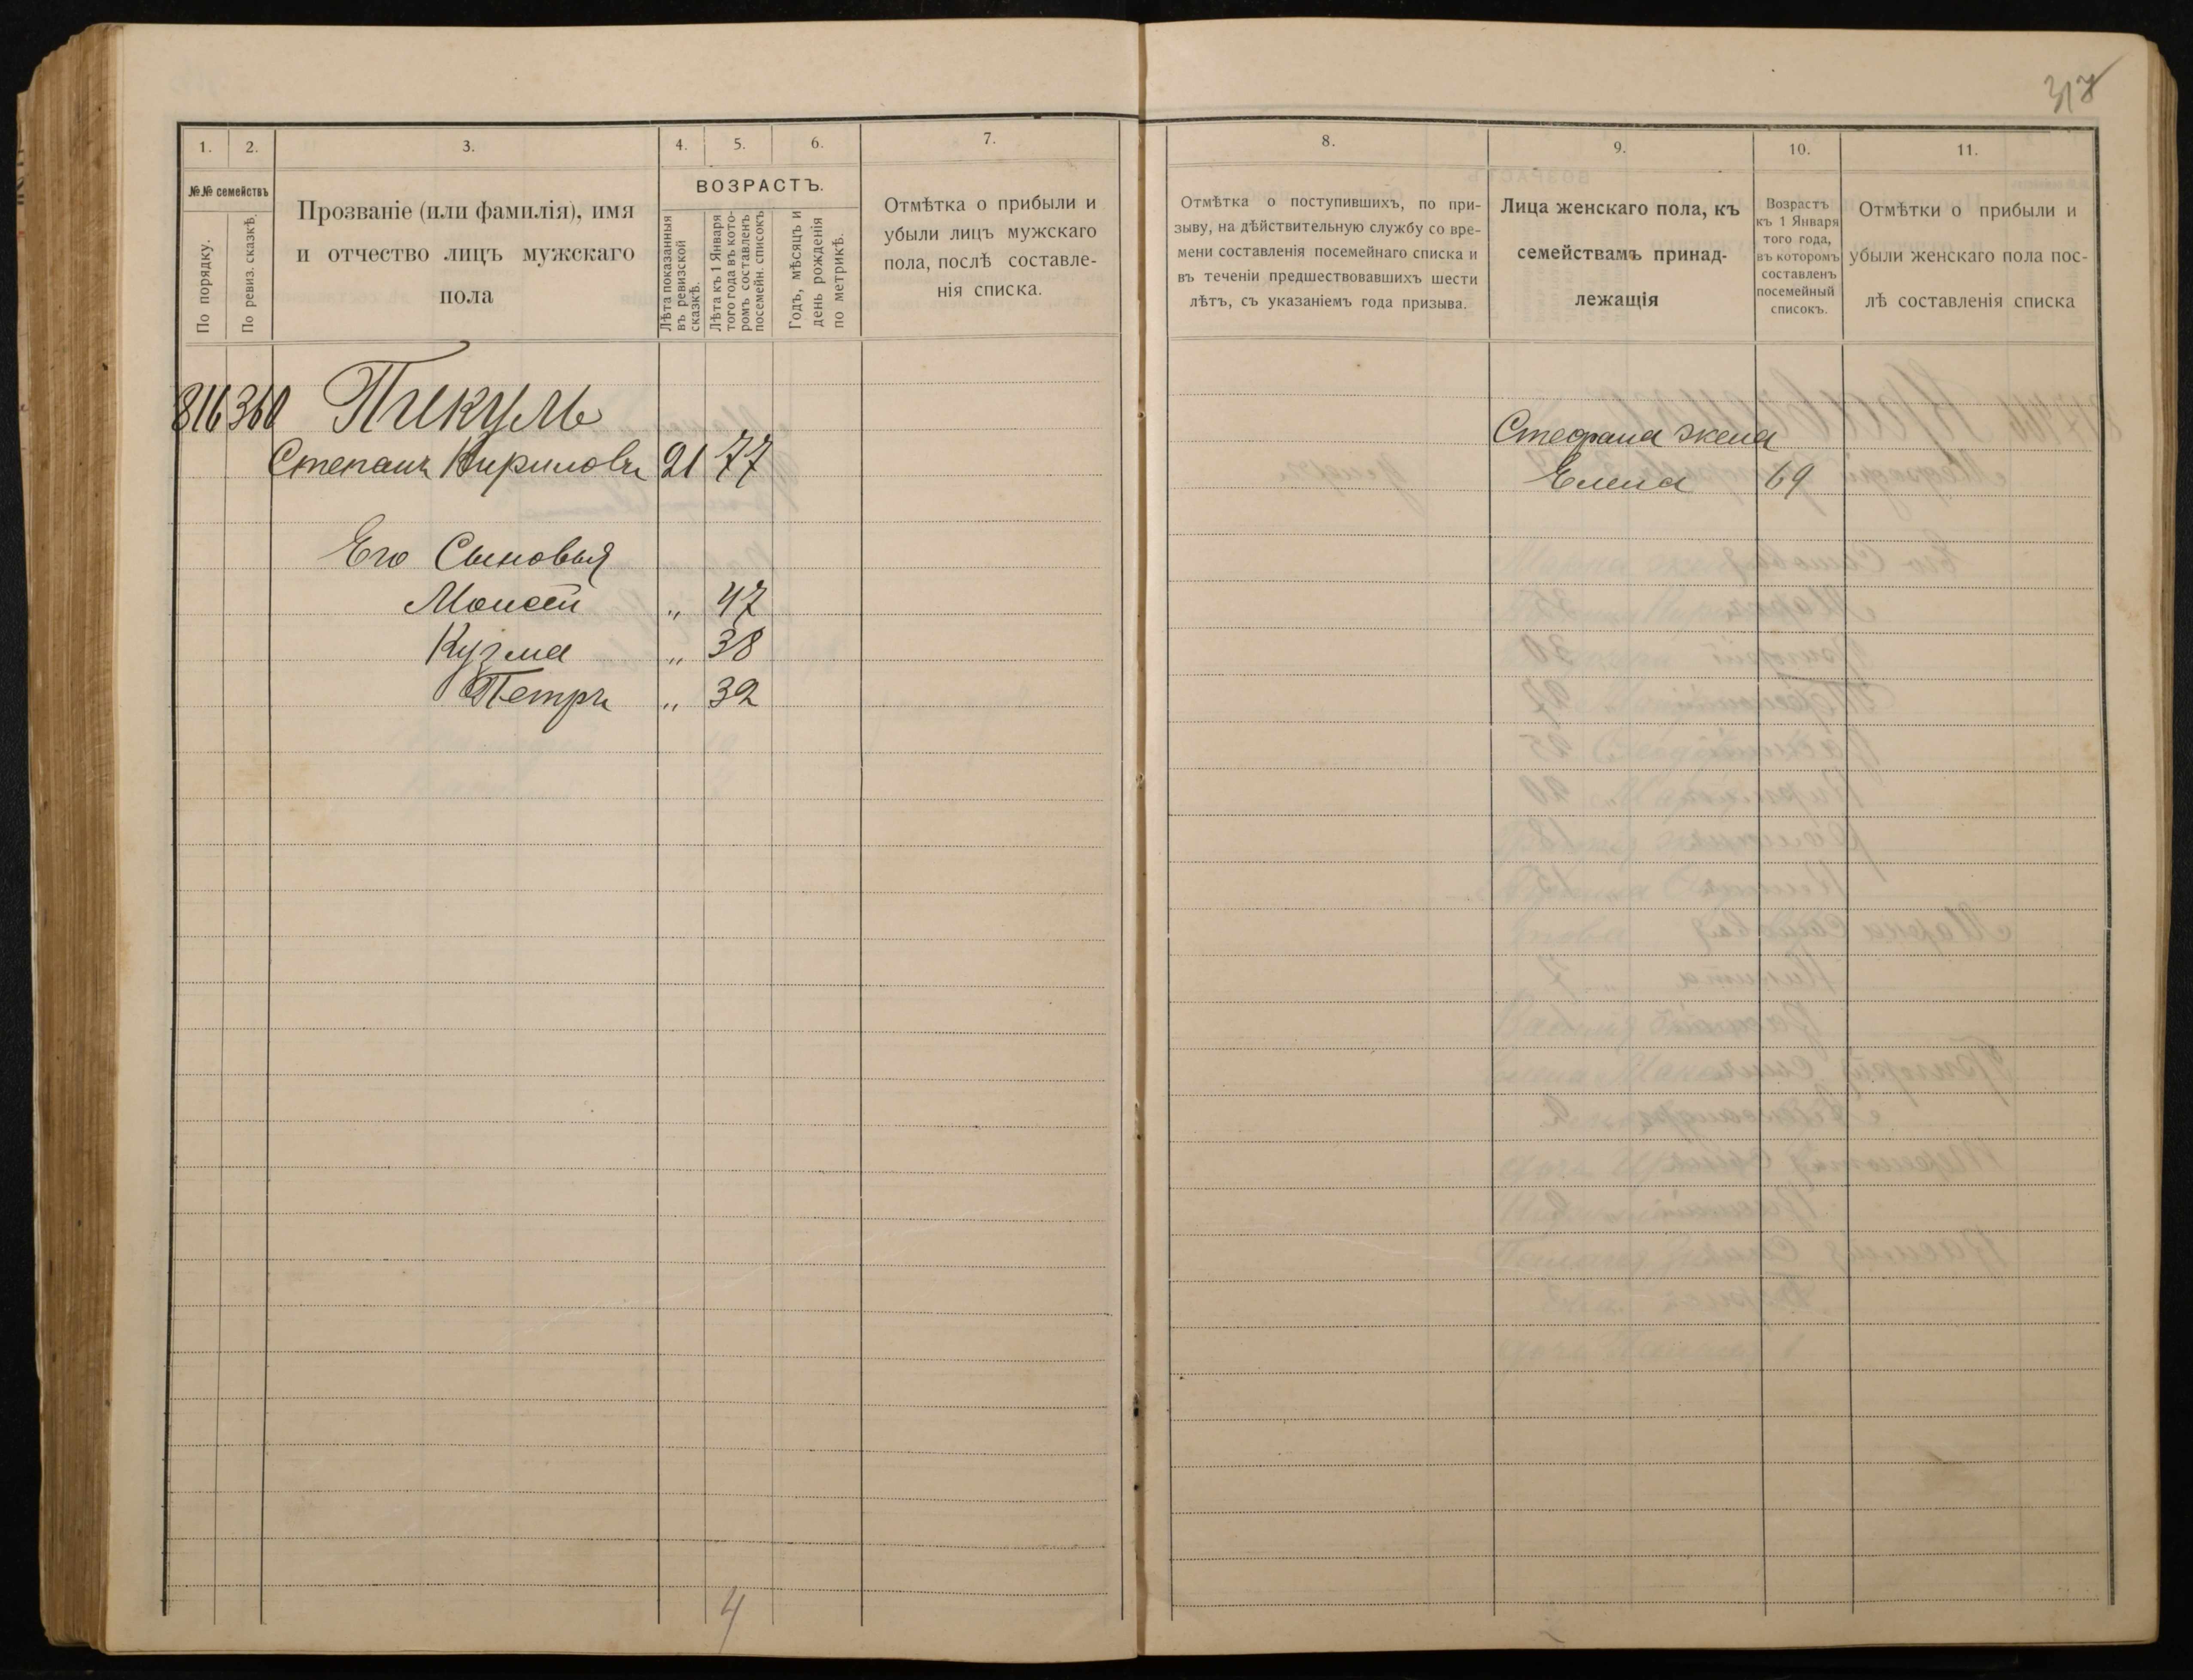 317
1.
2.
3.
4.
5.
6.
7.
№№ семействъ
По порядку.
По ревиз. сказкѣ.
Прозваніе (или фамилія), имя
и отчество лицъ мужскаго
пола
ВОЗРАСТЪ.
Лѣта показанныя
въ ревизской
сказкѣ.
Лѣта къ 1 Января
того года въ кото-
ромъ составленъ
посемейн. списокъ
Годъ, мѣсяцъ и
день рожденія
по метрикѣ.
Отмѣтка о прибыли и
убыли лицъ мужскаго
пола, послѣ составле-
нія списка.
816 360 Пикуль
Степанъ Кириловъ 21 77
Его Сыновья
Моисей " 47
Кузма " 38
Петръ " 32
4
8.
9.
10.
11.
Отмѣтка о поступившихъ, по при-
зыву, на дѣйствительную службу со вре-
мени составленія посемейнаго списка и
въ теченіи предшествовавшихъ шести
лѣтъ, съ указаніемъ года призыва.
Лица женскаго пола, къ
семействамъ принад-
лежащія
Возрастъ
къ 1 Января
того года,
въ которомъ
составленъ
посемейный
списокъ.
Отмѣтки о прибыли и
убыли женскаго пола пос-
лѣ составленія списка
Стефана жена
Елена 69